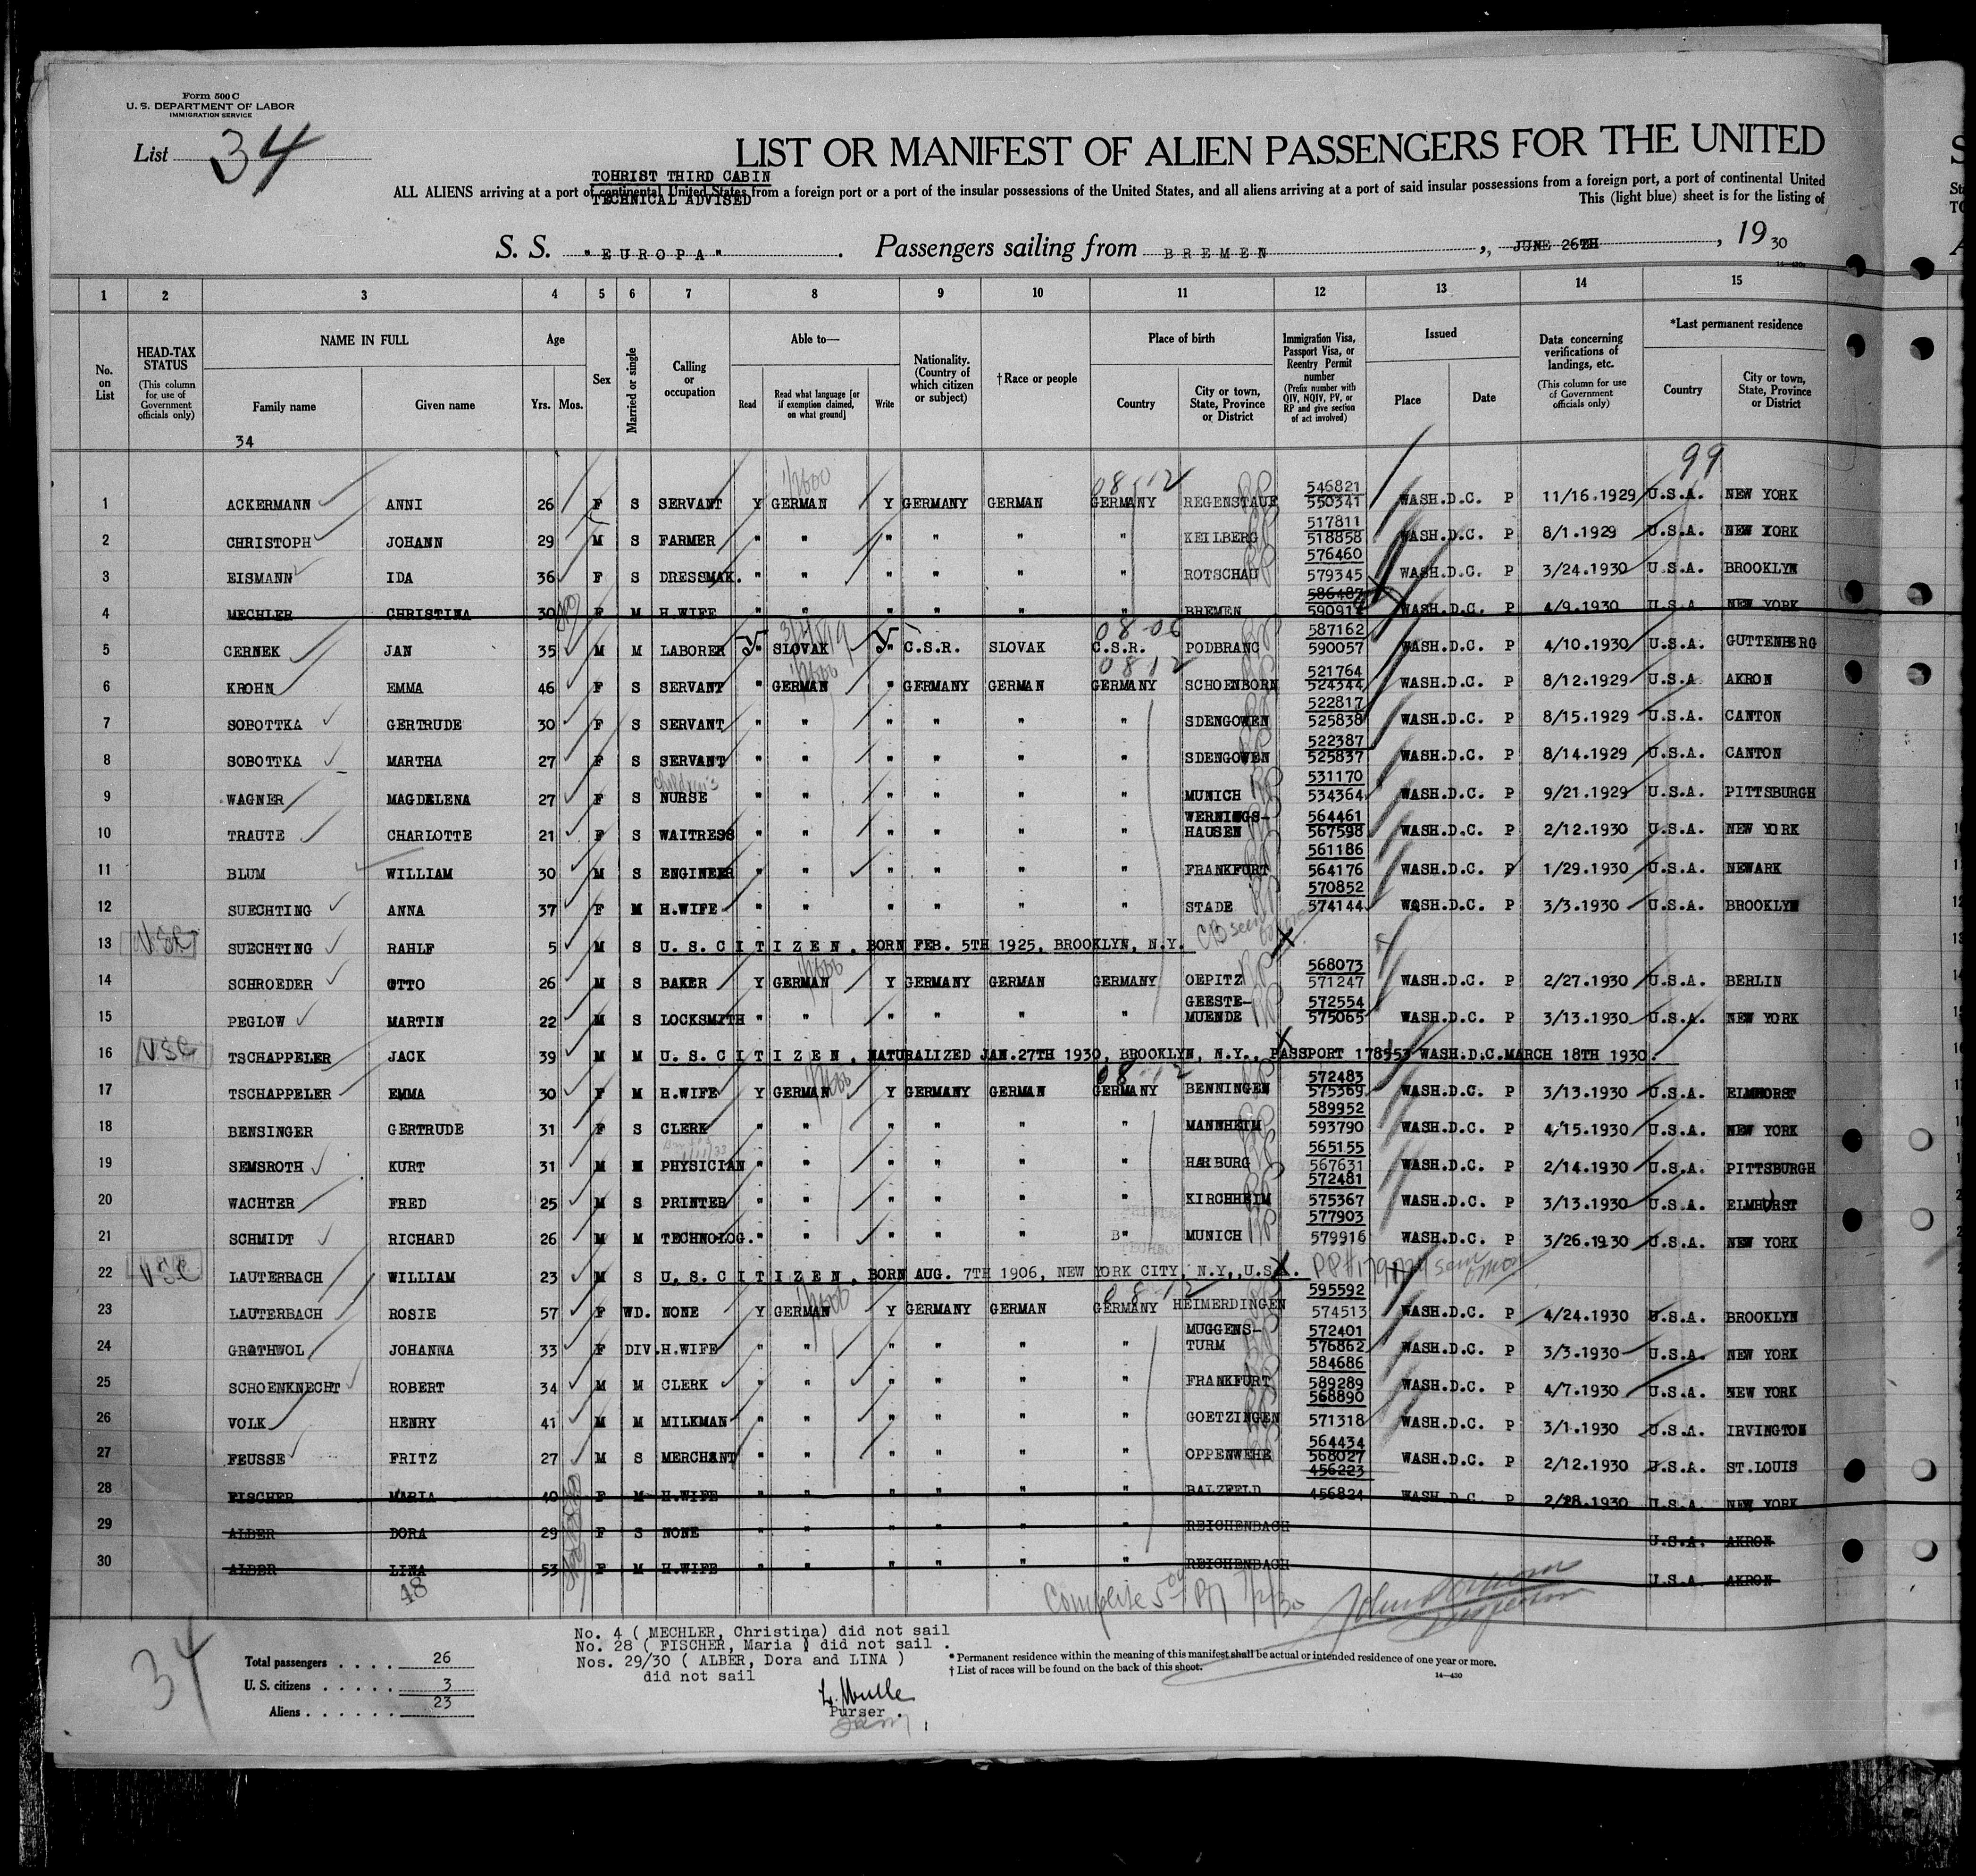 Form 500 C
U. S. DEPARTMENT OF LABOR
IMMIGRATION SERVICE
List 34
LIST OR MANIFEST OF ALIEN PASSENGERS FOR THE UNITED
TOURIST THIRD CABIN
ALL ALIENS arriving at a port of continental United States from a foreign port or a port of the insular possessions of the United States, and all aliens arriving at a port of said insular possessions from a foreign port, a port of continental United
TECHNICAL ADVISED
This (light blue) sheet is for the listing of
S. S. "EUROPA". Passengers sailing from BREMEN, JUNE 26TH, 1930
14-430
1 2 3 4 5 6 7 8 9 10 11 12 13 14 15
No. on List
HEAD-TAX STATUS (This column for use of Government officials only)
NAME IN FULL Family name Given name
Age Yrs. Mos.
Sex
Married or single
Calling or occupation
Able to— Read Read what language [or if exemption claimed, on what ground] Write
Nationality. (Country of which citizen or subject)
†Race or people
Place of birth Country City or town, State, Province or District
Immigration Visa, Passport Visa, or Reentry Permit number (Prefix number with QIV, NQIV, PV, or RP and give section of act involved)
Issued Place Date
Data concerning verifications of landings, etc. (This column for use of Government officials only)
*Last permanent residence Country City or town, State, Province or District
34
99
1 ACKERMANN ANNI 26 F S SERVANT Y GERMAN Y GERMANY GERMAN GERMANY REGENSTAUF 546821 550341 WASH.D.C. P 11/16.1929 U.S.A. NEW YORK
2 CHRISTOPH JOHANN 29 M S FARMER " " " " " " KEILBERG 517811 518858 WASH.D.C. P 8/1.1929 U.S.A. NEW YORK
3 EISMANN IDA 36 F S DRESSMAK. " " " " " ROTSCHAU 576460 579345 WASH.D.C. P 3/24.1930 U.S.A. BROOKLYN
4 MECHLER CHRISTINA 30 F M H.WIFE " " " " " " BREMEN 586487 WASH.D.C. P 4/9.1930 U.S.A. NEW YORK
5 CERNEK JAN 35 M M LABORER Y SLOVAK Y C.S.R. SLOVAK C.S.R. PODBRANC 587162 590057 WASH.D.C. P 4/10.1930 U.S.A. GUTTENBERG
6 KROHN EMMA 46 F S SERVANT " GERMAN " GERMANY GERMAN GERMANY SCHOENBORN 521764 524344 WASH.D.C. P 8/12.1929 U.S.A. AKRON
7 SOBOTTKA GERTRUDE 30 F S SERVANT " " " " " " SDENGOWEN 522817 525838 WASH.D.C. P 8/15.1929 U.S.A. CANTON
8 SOBOTTKA MARTHA 27 F S SERVANT " " " " " " SDENGOWEN 522387 525837 WASH.D.C. P 8/14.1929 U.S.A. CANTON
9 WAGNER MAGDELENA 27 F S children's NURSE " " " " " " MUNICH 531170 534364 WASH.D.C. P 9/21.1929 U.S.A. PITTSBURGH
10 TRAUTE CHARLOTTE 21 F S WAITRESS " " " " " " WERNINGS-HAUSEN 564461 567598 WASH.D.C. P 2/12.1930 U.S.A. NEW YORK
11 BLUM WILLIAM 30 M S ENGINEER " " " " " " FRANKFURT 561186 564176 WASH.D.C. P 1/29.1930 U.S.A. NEWARK
12 SUECHTING ANNA 37 F M H.WIFE " " " " " " STADE 570852 574144 WASH.D.C. P 3/3.1930 U.S.A. BROOKLYN
13 USC SUECHTING RAHLF 5 M S U.S.CITIZEN, BORN FEB. 5TH 1925, BROOKLYN, N.Y. CB seen
14 SCHROEDER OTTO 26 M S BAKER Y GERMAN Y GERMANY GERMAN GERMANY OEPITZ 568073 571247 WASH.D.C. P 2/27.1930 U.S.A. BERLIN
15 PEGLOW MARTIN 22 M S LOCKSMITH " " " " " " GEESTE-MUENDE 572554 575065 WASH.D.C. P 3/13.1930 U.S.A. NEW YORK
16 USC TSCHAPPELER JACK 39 M M U.S.CITIZEN, NATURALIZED JAN.27TH 1930, BROOKLYN, N.Y., PASSPORT 178553 WASH.D.C.MARCH 18TH 1930.
17 TSCHAPPELER EMMA 30 F M H.WIFE Y GERMAN Y GERMANY GERMAN GERMANY BENNINGEN 572483 575369 WASH.D.C. P 3/13.1930 U.S.A. ELMHORST
18 BENSINGER GERTRUDE 31 F S CLERK " " " " " " MANNHEIM 589952 593790 WASH.D.C. P 4/15.1930 U.S.A. NEW YORK
19 SEMSROTH KURT 31 M M PHYSICIAN " " " " " " HARBURG 565155 567631 WASH.D.C. P 2/14.1930 U.S.A. PITTSBURGH
20 WACHTER FRED 25 M S PRINTER " " " " " " KIRCHHEIM 572481 575367 WASH.D.C. P 3/13.1930 U.S.A. ELMHURST
21 SCHMIDT RICHARD 26 M M TECHNOLOG. " " " " " " MUNICH 577903 579916 WASH.D.C. P 3/26.1930 U.S.A. NEW YORK
22 USC LAUTERBACH WILLIAM 23 M S U.S.CITIZEN, BORN AUG. 7TH 1906, NEW YORK CITY, N.Y.,U.S.A.
23 LAUTERBACH ROSIE 57 F WD. NONE Y GERMAN Y GERMANY GERMAN GERMANY HEIMERDINGEN 595592 574513 WASH.D.C. P 4/24.1930 U.S.A. BROOKLYN
24 GROTHWOL JOHANNA 33 F DIV. H.WIFE " " " " " " MUGGENS-TURM 572401 576862 WASH.D.C. P 3/3.1930 U.S.A. NEW YORK
25 SCHOENKNECHT ROBERT 34 M M CLERK " " " " " " FRANKFURT 584686 589289 WASH.D.C. P 4/7.1930 U.S.A. NEW YORK
26 VOLK HENRY 41 M M MILKMAN " " " " " " GOETZINGEN 568890 571318 WASH.D.C. P 3/1.1930 U.S.A. IRVINGTON
27 FEUSSE FRITZ 27 M S MERCHANT " " " " " " OPPENWEHE 564434 568027 WASH.D.C. P 2/12.1930 U.S.A. ST.LOUIS
28 FISCHER MARIA 40 F M H.WIFE " " " " " " BALZFELD 456223 456824 WASH.D.C. P 2/28.1930 U.S.A. NEW YORK
29 ALBER DORA 29 F S NONE " " " " " " REICHENBACH U.S.A. AKRON
30 ALBER LINA 53 F M H.WIFE " " " " " " REICHENBACH U.S.A. AKRON
48
Complete 7/2/30
34
Total passengers 26
U. S. citizens 3
Aliens 23
No. 4 ( MECHLER, Christina) did not sail
No. 28 ( FISCHER, Maria ) did not sail .
Nos. 29/30 ( ALBER, Dora and LINA )
did not sail
Purser .
* Permanent residence within the meaning of this manifest shall be actual or intended residence of one year or more.
† List of races will be found on the back of this sheet.
14-430